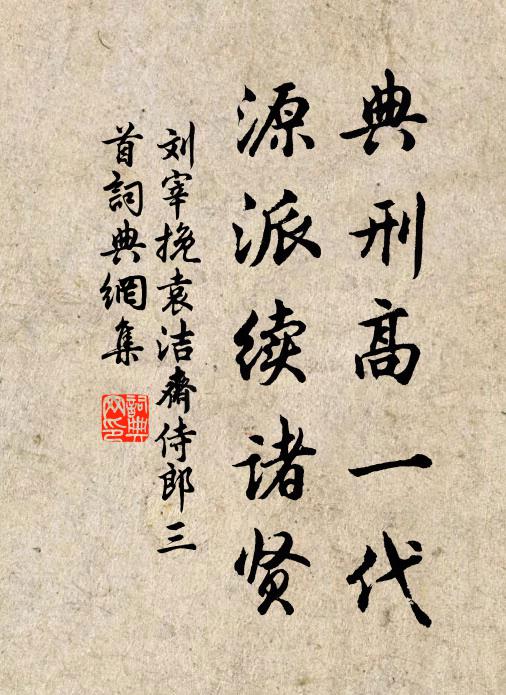 典刑高一代
源派续诸贤
刘宰挽袁洁斋侍郎三
首词典網集
詞典網印